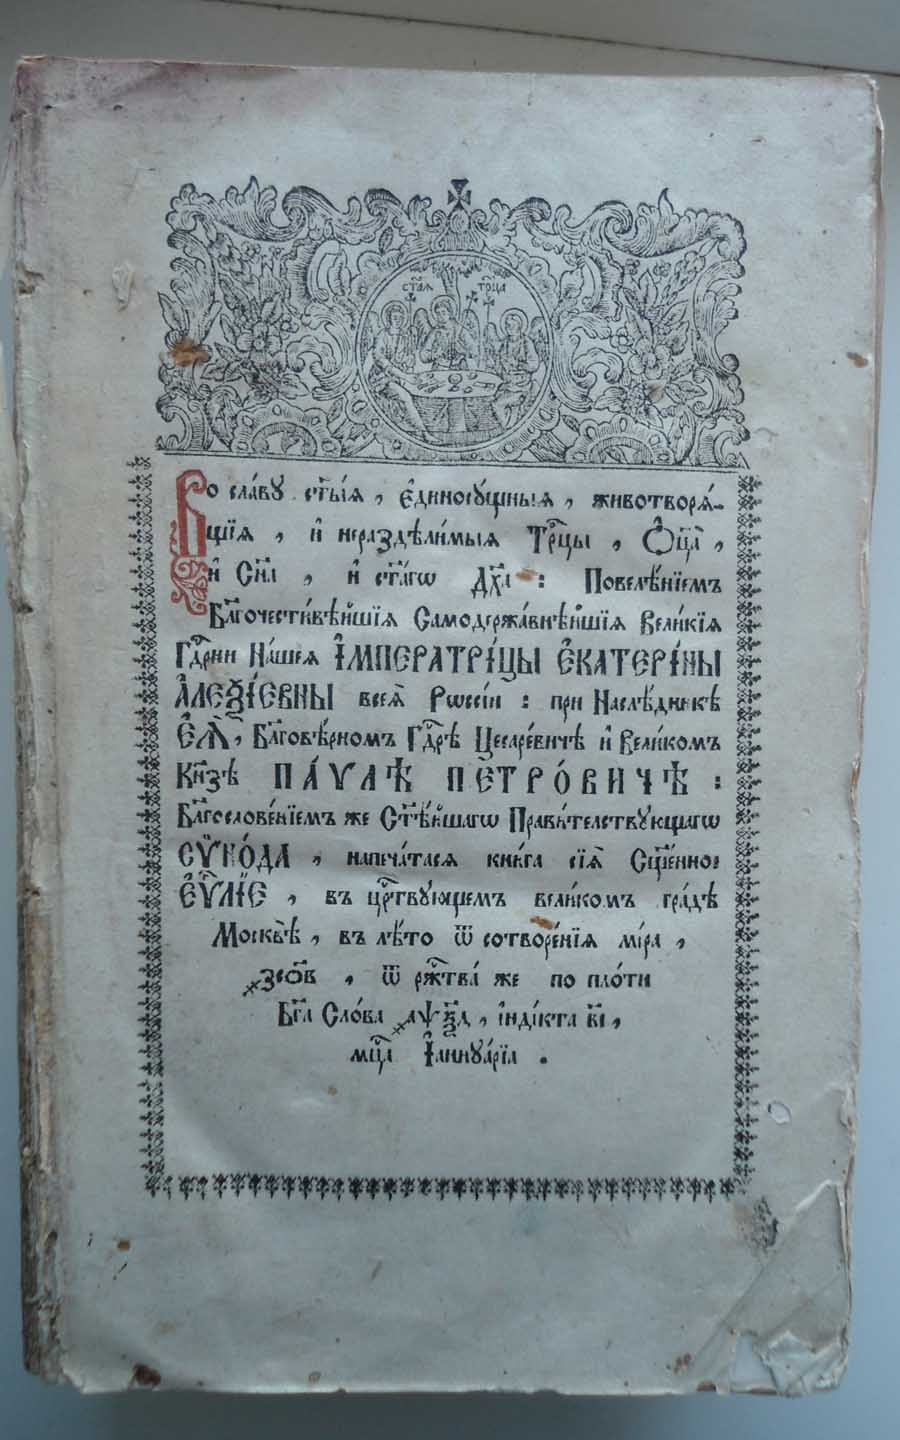 стаѧ трⷪ҇ца
Во сла́вꙋ ст҃ы́ѧ, є҆диносꙋ́щныѧ, животворѧ́-
щїѧ, и҆ нераздѣли́мыѧ Трⷪ҇цы, Ѻ҆ц҃а̀,
и҆ Сн҃а, и҆ ст҃а́гѡ Дх҃а: Повелѣ́нїемъ
Бл҃гочести́вѣйшїѧ Самодержа́внѣйшїѧ Вели́кїѧ
Гдⷭ҇рни На́шеѧ І҆МПЕРАТРІ́ЦЫ Є҆КАТЕРІ́НЫ
А҆ЛЕѮІ́ЕВНЫ всеѧ̀ Рѡссі́и: при Наслѣ́дникѣ
Є҆Ѧ̀, Бл҃говѣ́рномъ Гдⷭ҇рѣ Цесаре́вичѣ и҆ Вели́комъ
Кн҃зѣ ПА́ѴЛѢ ПЕТРО́ВИЧѢ:
Бл҃гослове́нїемъ же Ст҃ѣ́йшагѡ Прави́телствꙋющагѡ
СѴНО́ДА, напеча́тасѧ кни́га сїѧ̀ Сщ҃е́нное
Є҆ѴⷢЛІЕ, въ црⷭ҇твꙋющемъ вели́комъ гра́дѣ
Москвѣ̀, въ лѣ́то ѿ сотворе́нїѧ мі́ра,
҂зсѻ҃в, ѿ ржⷭ҇тва́ же по пло́ти
Бг҃а Сло́ва ҂аѱѯ҃д, і҆ндї́кта в҃і,
мцⷭ҇а І҆аннꙋа́рїа.